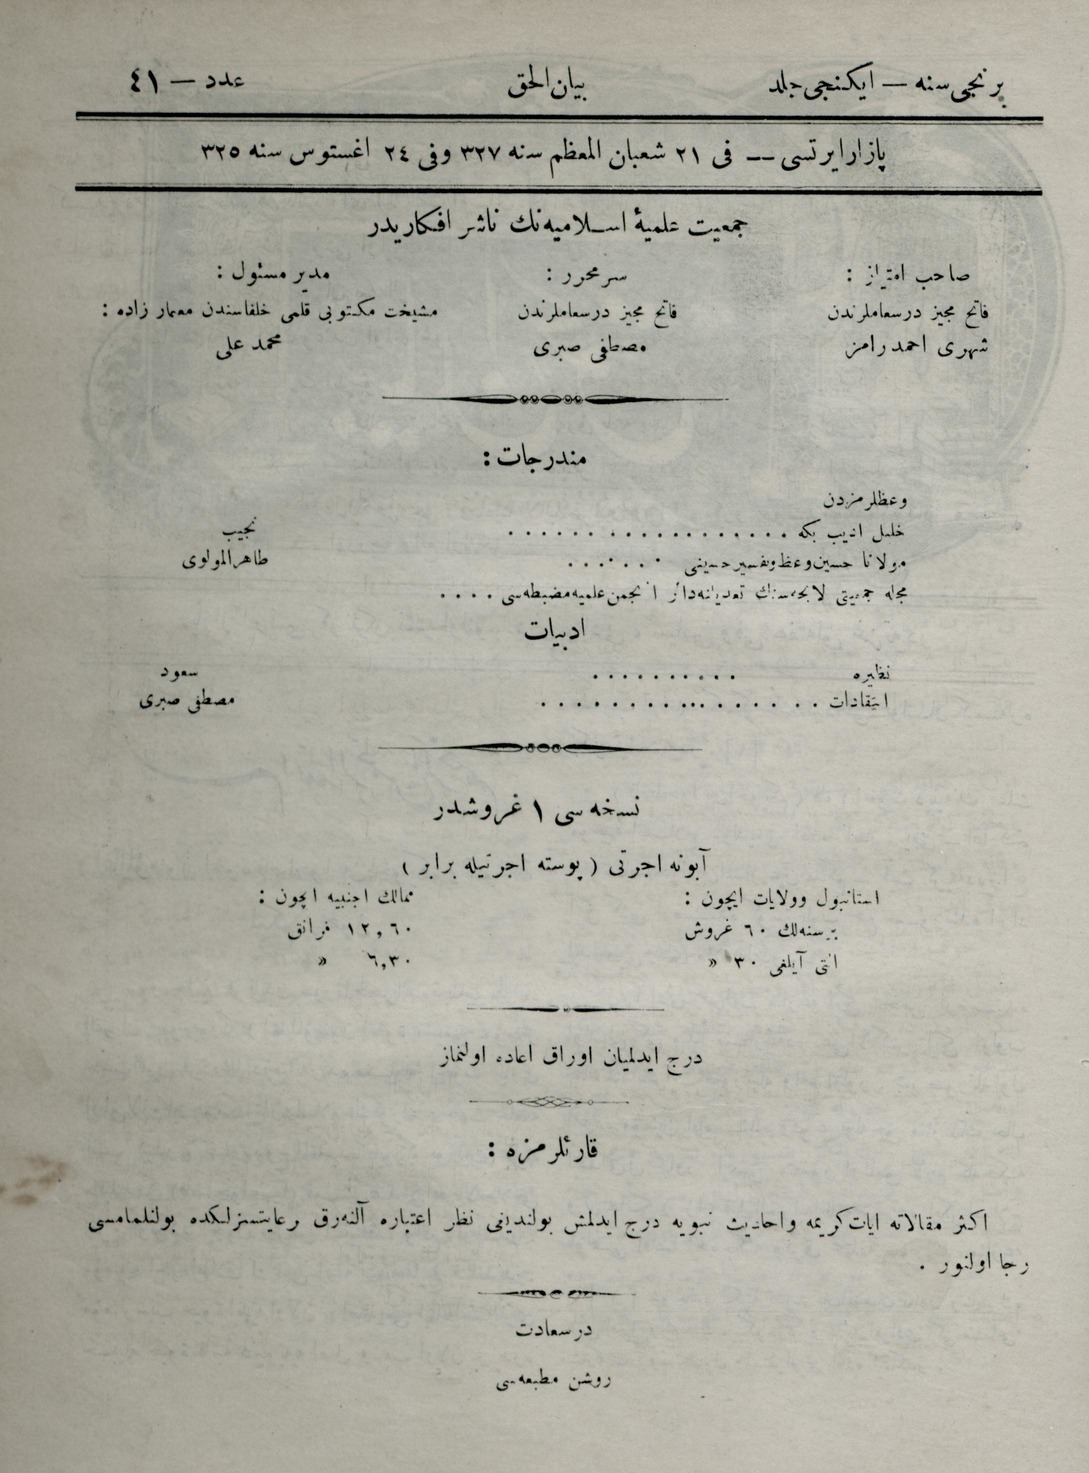 برنجی سنه — ایکنجی جلد بیان الحق عدد — ٤١
پازار ایرتسی — فی ٢١ شعبان المعظم سنه ٣٢٧ وفی ٢٤ اغستوس سنه ٣٢٥
جمعیت علمیۀ اسلامیه نك ناشر افکاریدر
صاحب امتیاز : سرمحرر : مدیر مسئول :
فاتح مجیز درسعاملرندن فاتح مجیز درسعاملرندن مشیخت مکتوبی قلمی خلفاسندن معمار زاده :
شهری احمد رامز مصطفی صبری محمد علی
مندرجات :
وعظلرمزدن
خلیل ادیب بکه . . . . . . . . . . . . . . . . . نجیب
مولانا حسین وعظ وتفسیر حسینی . . . . . . . طاهر المولوی
مجله جمعیتی لایحه سنك تعدیلاته دائر انجمن علمیه مضبطه سی . . . .
ادبیات
نظیره . . . . . . . . . . سعود
انتقادات . . . . . . . . . . . . . . . . مصطفی صبری
نسخه سی ١ غروشدر
آبونه اجرتی ( پوسته اجرتیله برابر )
استانبول وولایات ایچون : ممالك اجنبیه ایچون :
برسنه لك ٦٠ غروش ١٢,٦٠ فرانق
التی آیلغی ٣٠ » ٦,٣٠ »
درج ایدلمیان اوراق اعاده اولنماز
قارئلرمزه :
اکثر مقالاته ایات کریمه واحادیث نبویه درج ایدلمش بولندیغی نظر اعتباره آلنه رق رعایتسزلکده بولنلمامسی
رجا اولنور .
درسعادت
روشن مطبعه سی